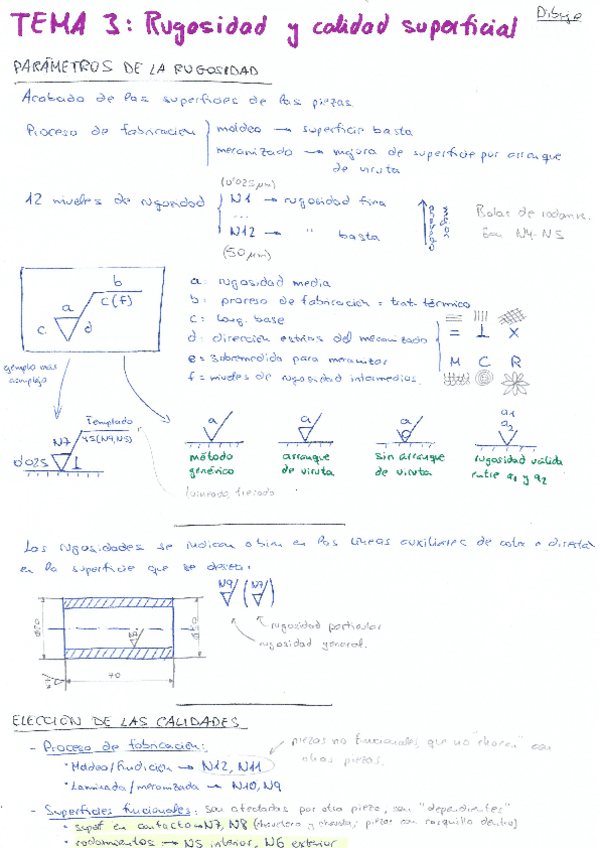 Dibujo
TEMA 3: Rugosidad y calidad superficial
PARÁMETROS DE LA RUGOSIDAD
Acabado de las superficies de las piezas.
Proceso de fabricación
moldeo → superficie basta
mecanizado → mejora de superficie por arranque
de viruta
(0'025 μm)
12 niveles de rugosidad
N1 → rugosidad fina
...
N12 → " basta
(50 μm)
mejor
acabado
Bolas de rodam.
Son N4-N5
b
a c(f)
e d
a: rugosidad media
b: proceso de fabricación = trat. térmico
c: long. base
d: dirección estrías del mecanizado
= ⊥ X
M C R
e = sobremedida para mecanizar
f = niveles de rugosidad intermedios.
ejemplo más
complejo
Templado
N7 45(N9,N5)
0'025 ⊥
a
método
genérico
a
arranque
de viruta
a
sin arranque
de viruta
a1
a2
rugosidad válida
entre a1 y a2
torneado, fresado
Las rugosidades se indican o bien en las líneas auxiliares de cota o directa
en la superficie que se desea:
N9 (N7)
rugosidad particular
rugosidad general.
70
ELECCIÓN DE LAS CALIDADES
- Proceso de fabricación:
• Moldeo/fundición → N12, N11
piezas no funcionales, que no "chocan" con
otras piezas.
• Laminado/mecanizado → N10, N9
- Superficies funcionales: son afectadas por otra pieza, son "dependientes"
• supf en contacto → N7, N8 (chavetero y chaveta; piezas con casquillo dentro)
• rodamientos → N5 interior, N6 exterior